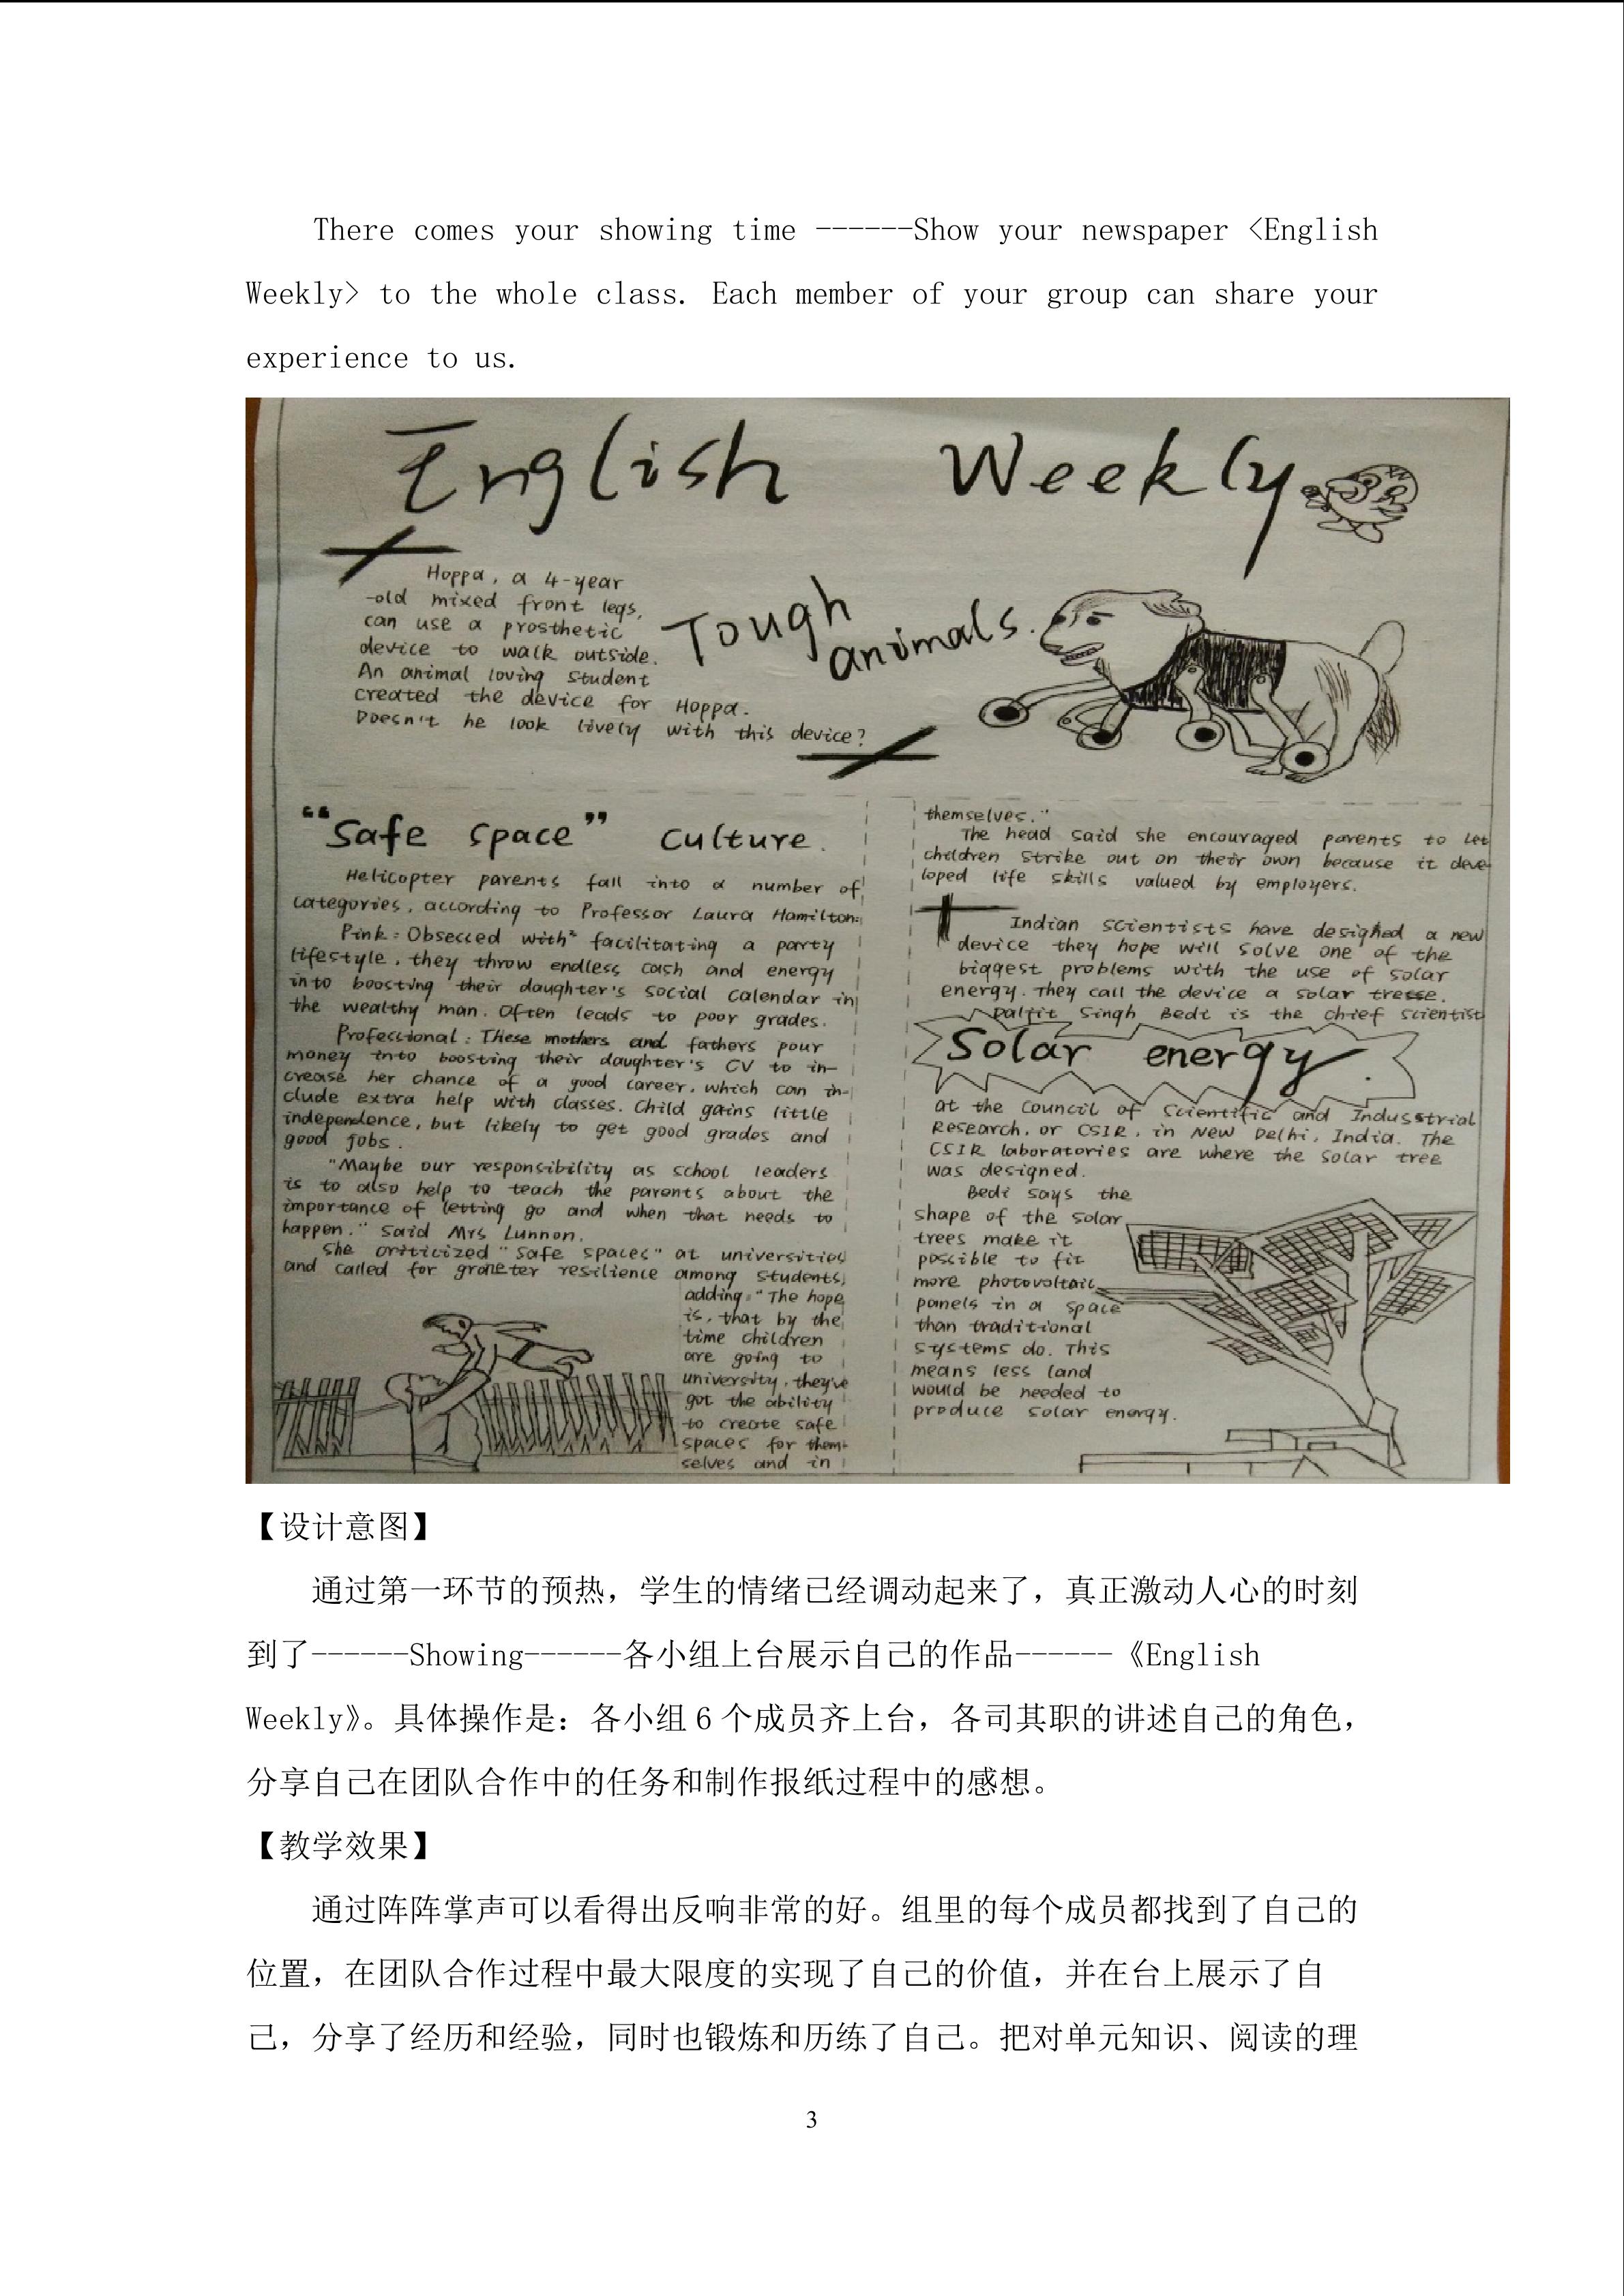 There comes your showing time ------Show your newspaper <English
Weekly> to the whole class. Each member of your group can share your
experience to us.
English Weekly
Hoppa, a 4-year
-old mixed front legs,
can use a prosthetic
device to walk outside.
An animal loving student
created the device for Hoppa.
Doesn't he look lively with this device?
Tough
animals.
"Safe space" culture.
Helicopter parents fall into a number of
categories, according to Professor Laura Hamilton:
Pink: Obsecced with facilitating a party
lifestyle, they throw endless cash and energy
into boosting their daughter's social calendar in
the wealthy man. Often leads to poor grades.
Professional: These mothers and fathers pour
money into boosting their daughter's CV to in-
crease her chance of a good career, which can in-
clude extra help with classes. Child gains little
independence, but likely to get good grades and
good jobs.
"Maybe our responsibility as school leaders
is to also help to teach the parents about the
importance of letting go and when that needs to
happen." said Mrs Lunnon.
She criticized "safe spaces" at universities
and called for resilience among students,
adding: "The hope
is, that by the
time children
are going to
university, they've
got the ability
to create safe
spaces for them-
selves and in
themselves."
The head said she encouraged parents to let
children strike out on their own because it deve-
loped life skills valued by employers.
Indian scientists have designed a new
device they hope will solve one of the
biggest problems with the use of solar
energy. They call the device a solar
Daljit Singh Bedi is the chief scientist
Solar energy.
at the Council of Scientific and Indusstrial
Research, or CSIR, in New Delhi, India. The
CSIR laboratories are where the solar tree
was designed.
Bedi says the
shape of the solar
trees make it
possible to fit
more photovoltaic
panels in a space
than traditional
systems do. This
means less land
would be needed to
produce solar energy.
【设计意图】
通过第一环节的预热，学生的情绪已经调动起来了，真正激动人心的时刻
到了------Showing------各小组上台展示自己的作品------《English
Weekly》。具体操作是：各小组 6 个成员齐上台，各司其职的讲述自己的角色，
分享自己在团队合作中的任务和制作报纸过程中的感想。
【教学效果】
通过阵阵掌声可以看得出反响非常的好。组里的每个成员都找到了自己的
位置，在团队合作过程中最大限度的实现了自己的价值，并在台上展示了自
己，分享了经历和经验，同时也锻炼和历练了自己。把对单元知识、阅读的理
3